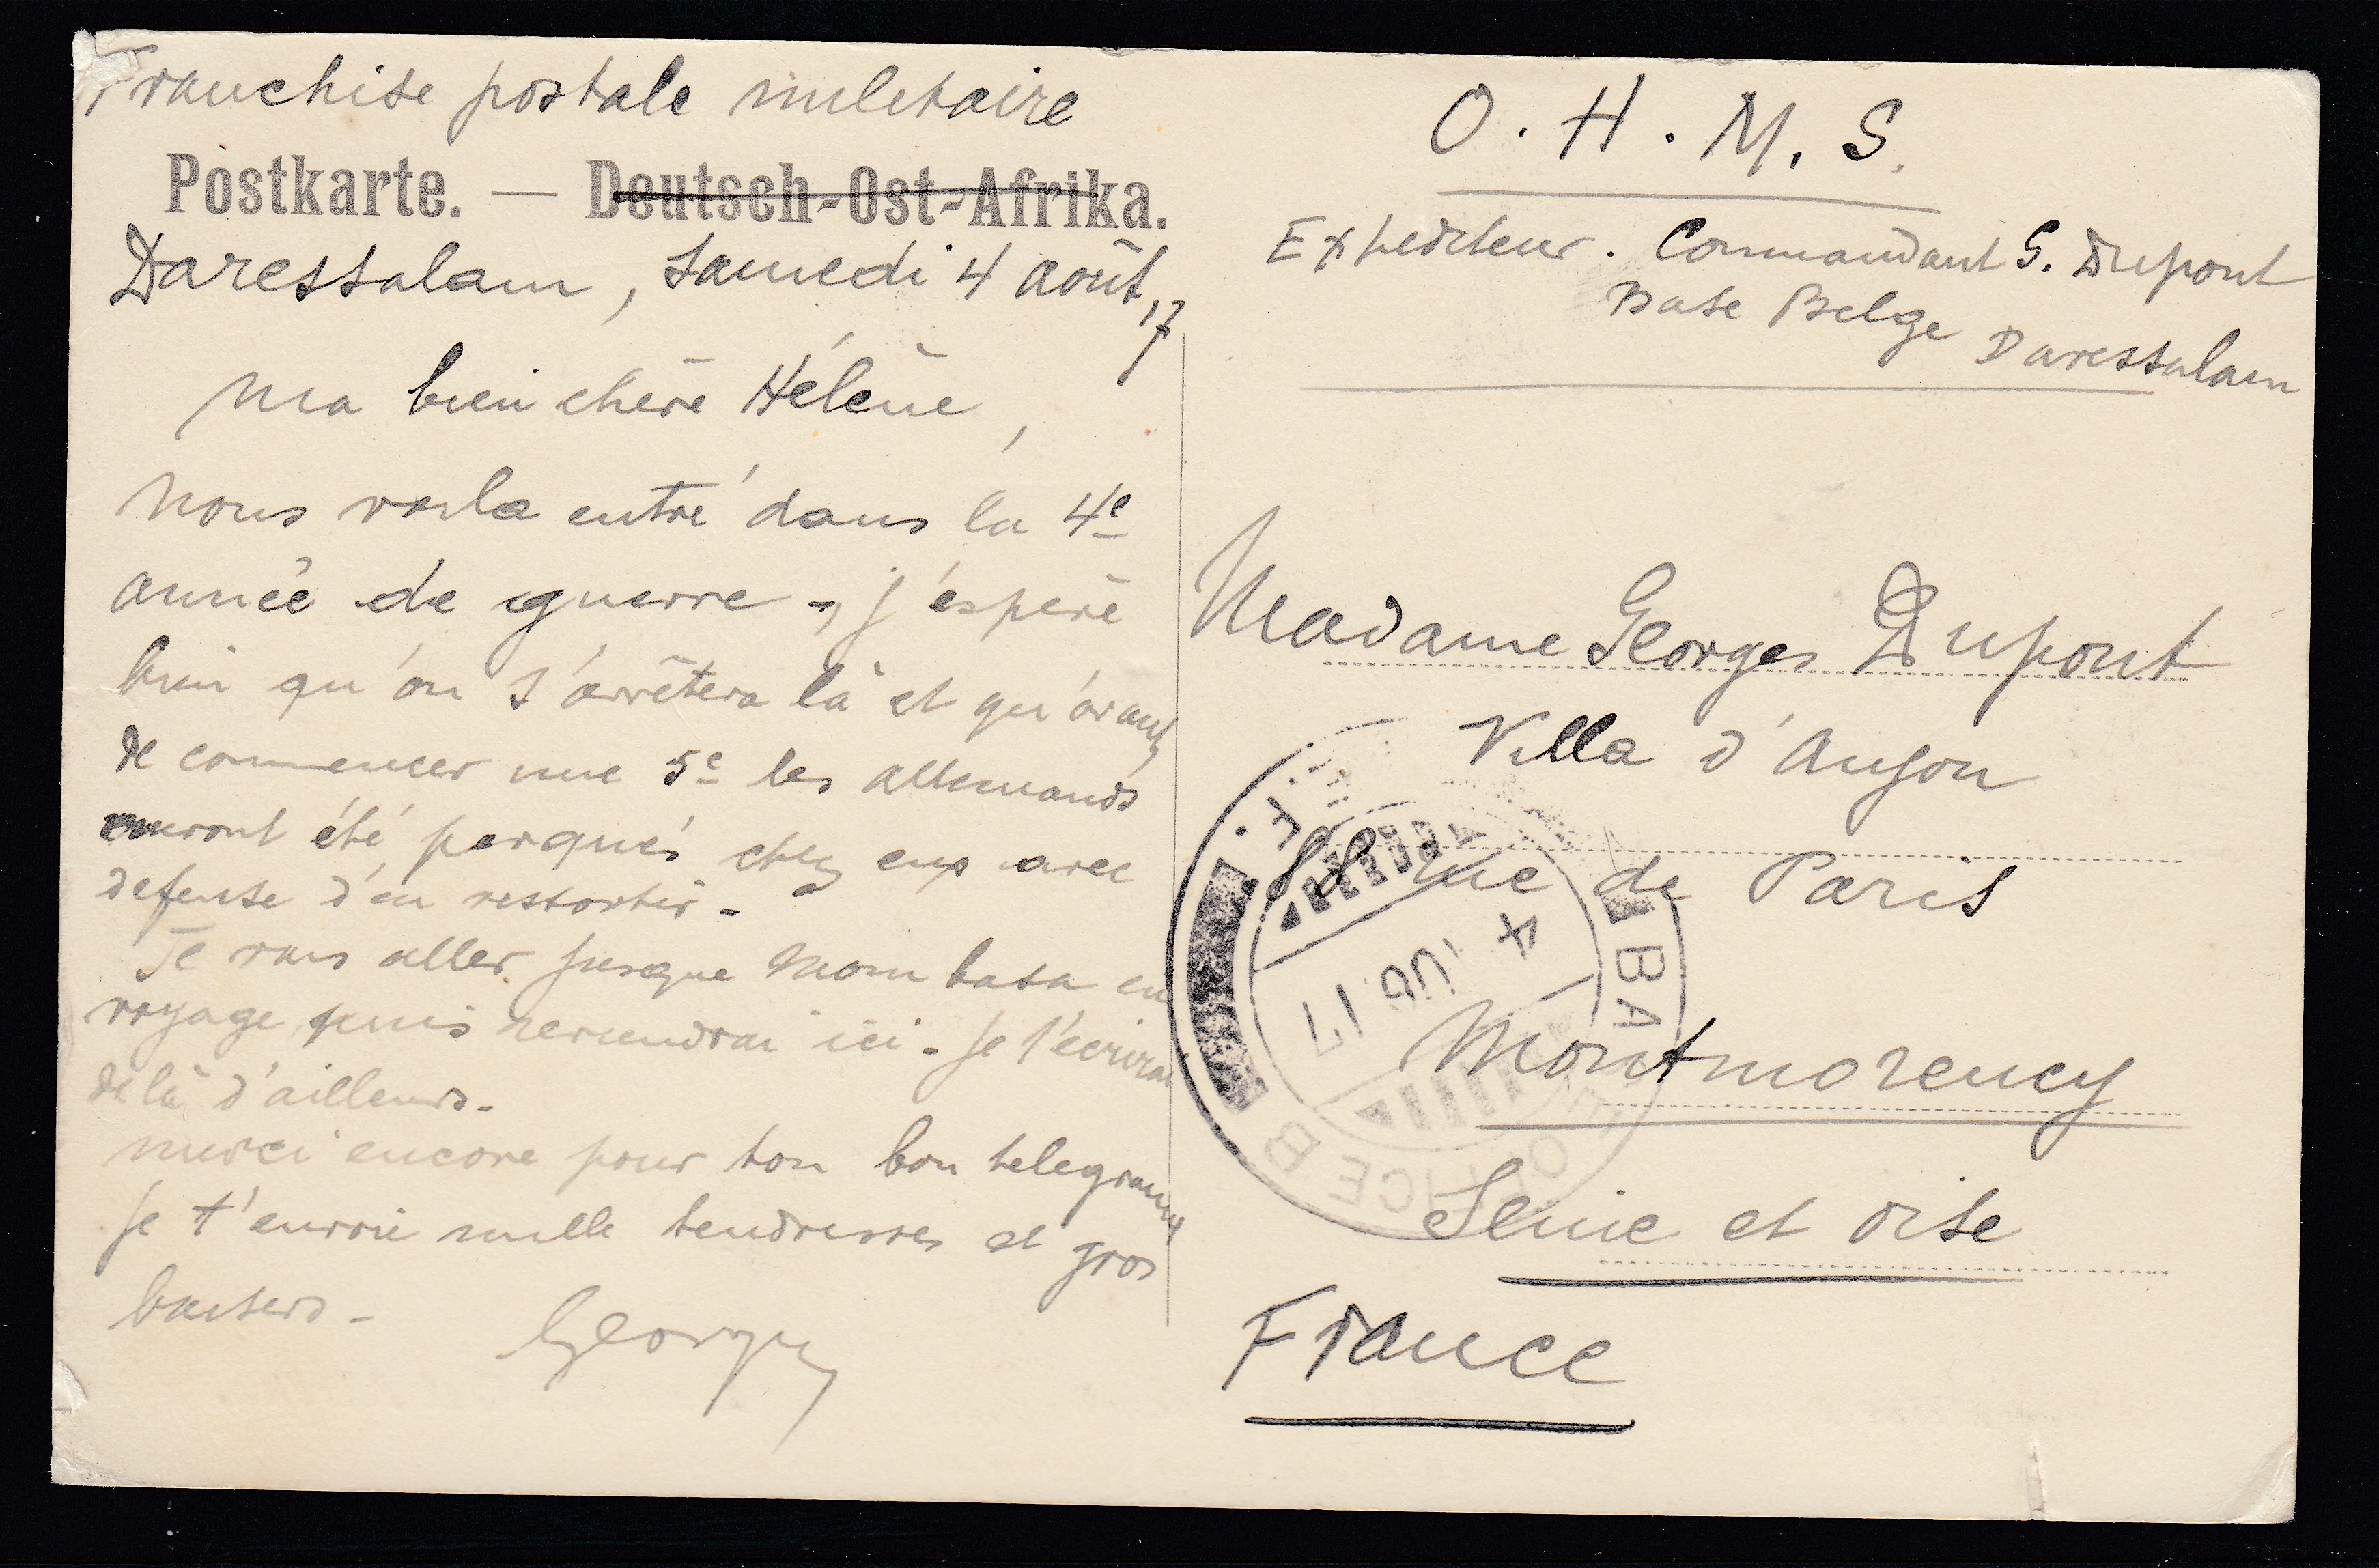 Franchise postale militaire
Postkarte. — Deutsch-Ost-Afrika.
Daressalam, Samedi 4 août, 17
Ma bien chère Hélène,
Nous voila entré dans la 4e
année de guerre -, j'éspère
bien qu'on s'arrêtera là et qu'avant
de commencer une 5e les allemands
auront été parqués chez eux avec
defense d'en ressortir -
Je vais aller jusque Mombasa en
voyage puis reviendrai ici - Je t'écrirai
de là d'ailleurs -
Merci encore pour ton bon telegramme
Je t'envoie mille tendresses et gros
baisers -
Georges
O. H. M. S.
Expediteur. Commandant G. Dupont
Base Belge Daressalam
Madame Georges Dupont
Villa d'Anjou
rue de Paris
Montmorency
Seine et Oise
France
BA
4 AUG 17
OFFICE B
F.